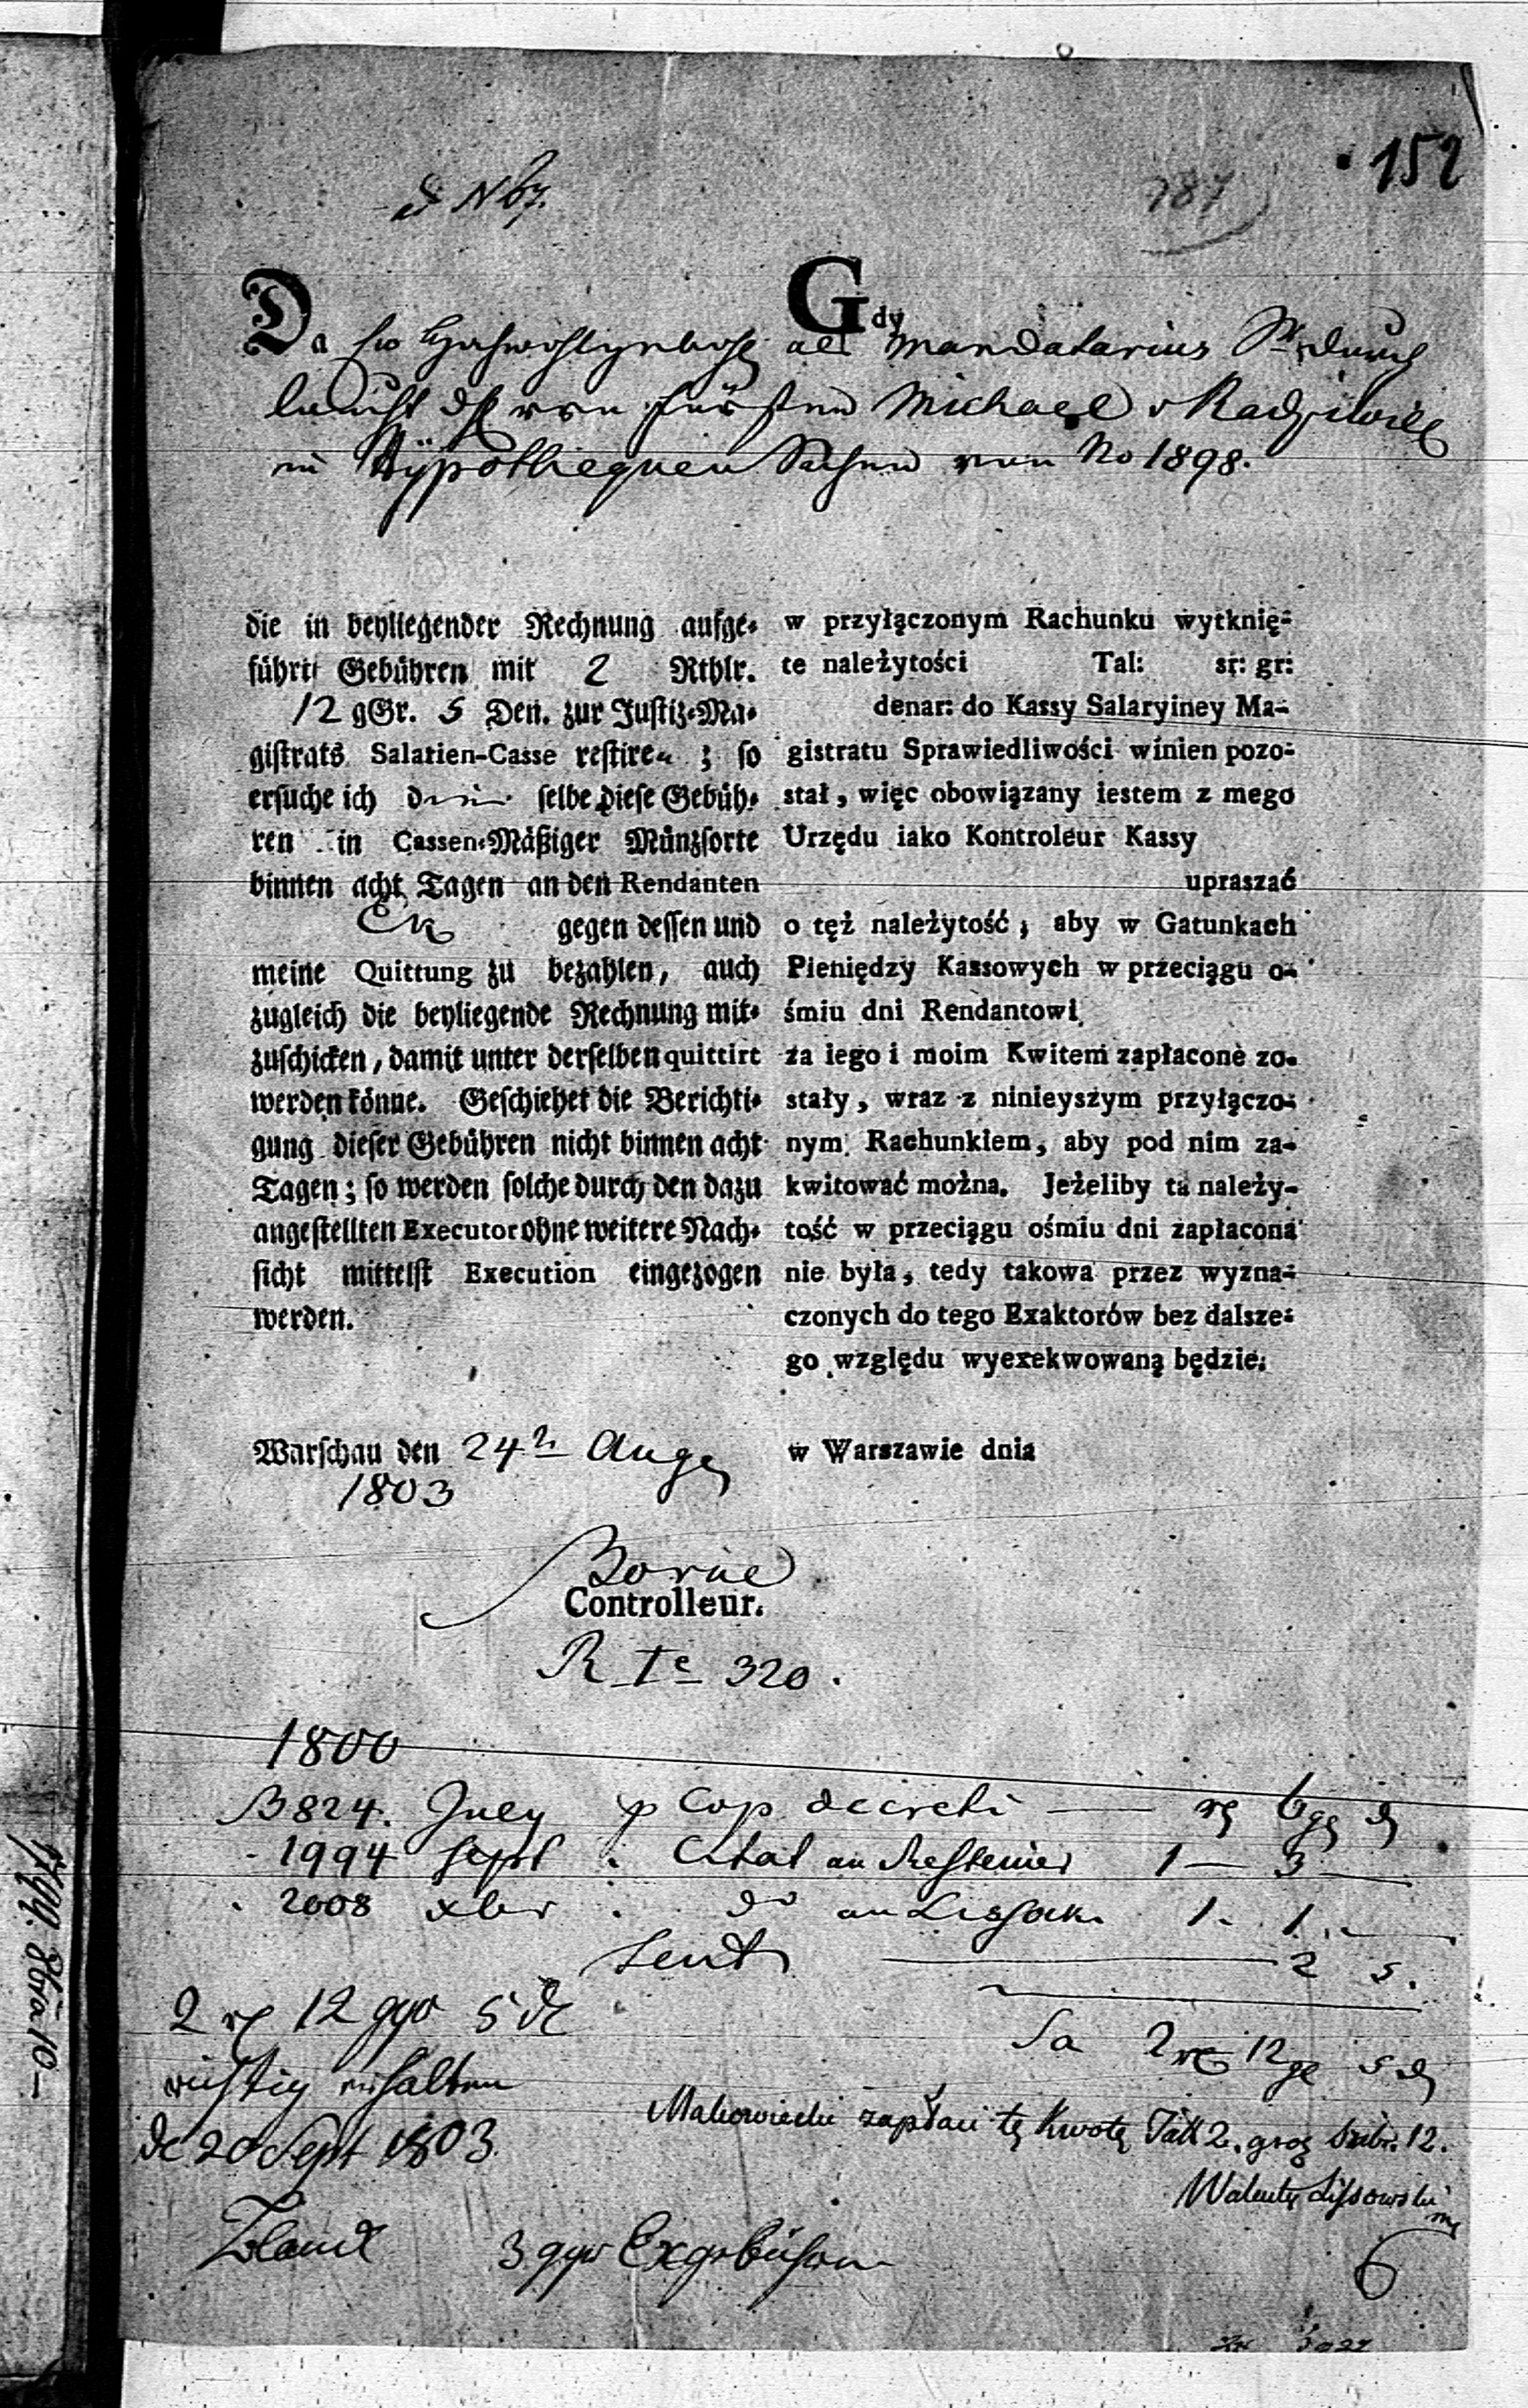 152
187
ad N 67.
Da Ew Hochwohlgeb. als Mandatarius Sr. Durch
laucht des Herrn Fürsten Michael v Radziwill
in Hypothequen Sachen von No 1898.
Gdy
die in beyliegender Rechnung aufge-
führte Gebühren mit 2 Rthlr.
12 gGr. 5 Den. zur Justiz-Ma-
gistrats Salarien-Casse restiren ; so
ersuche ich dieselbe diese Gebüh-
ren in Cassen-Mäßiger Münzsorte
binnen acht Tagen an den Rendanten
gegen dessen und
meine Quittung zu bezahlen, auch
zugleich die beyliegende Rechnung mit-
zuschicken, damit unter derselben quittirt
werden könne. Geschiehet die Berichti-
gung dieser Gebühren nicht binnen acht
Tagen; so werden solche durch den dazu
angestellten Executor ohne weitere Nach-
sicht mittelst Execution eingezogen
werden.
w przyłączonym Rachunku wytknię-
te należytości Tal: sr: gr:
denar: do Kassy Salaryiney Ma-
gistratu Sprawiedliwości winien pozo-
stał, więc obowiązany iestem z mego
Urzędu iako Kontroleur Kassy
upraszać
o tęż należytość, aby w Gatunkach
Pieniędzy Kassowych w przeciągu o-
śmiu dni Rendantowi
za iego i moim Kwitem zapłacone zo-
stały, wraz z ninieyszym przyłączo-
nym Rachunkiem, aby pod nim za-
kwitować można. Jeżeliby ta należy-
tość w przeciągu ośmiu dni zapłacona
nie była, tedy takowa przez wyzna-
czonych do tego Exaktorów bez dalsze-
go względu wyexekwowaną będzie.
Warschau den 24t Aug
1803
w Warszawie dnia
Borne
Controlleur.
R Te 320.
1800
B 824. July p Cop decreti — rt 6 gg d
- 1994 Sept . Citat an 1 — 3 —
. 2008 xber . do an Lissak. 1. 1. —
— 2 5.
Sa 2 rt 12 gg 5 d
2 rt 12 ggr 5 d
richtig erhalten
de 20 Sept 1803.
Makowiecki zapłaci tę kwotę Tall 2. grosz srebr. 12.
Walenty Lissowski
mp
3 ggr Exgebühren
6